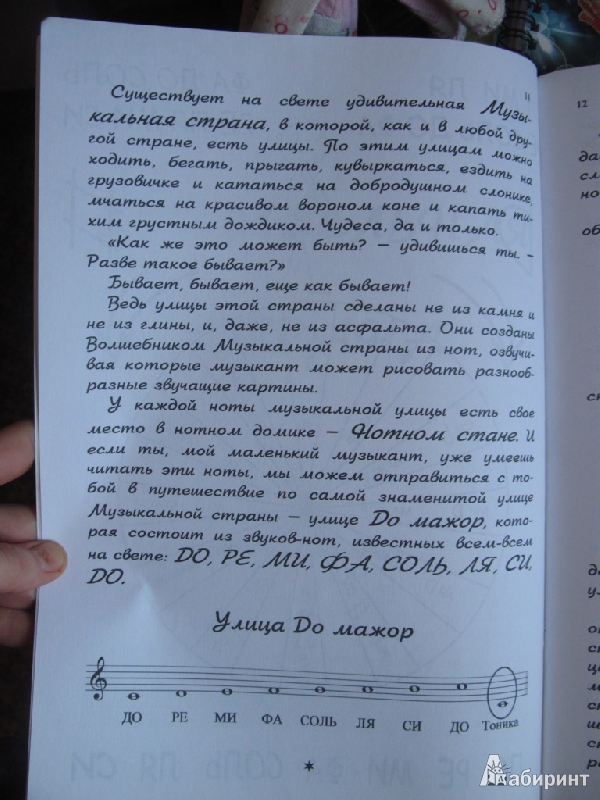 11
Существует на свете удивительная Музы-
кальная страна, в которой, как и в любой дру-
гой стране, есть улицы. По этим улицам можно
ходить, бегать, прыгать, кувыркаться, ездить на
грузовичке и кататься на добродушном слонике,
мчаться на красивом вороном коне и капать ти-
хим грустным дождиком. Чудеса, да и только.
«Как же это может быть? – удивишься ты. -
Разве такое бывает?»
Бывает, бывает, еще как бывает!
Ведь улицы этой страны сделаны не из камня и
не из глины, и, даже, не из асфальта. Они созданы
Волшебником Музыкальной страны из нот, озвучи-
вая которые музыкант может рисовать разнооб-
разные звучащие картины.
У каждой ноты музыкальной улицы есть свое
место в нотном домике – Нотном стане. И
если ты, мой маленький музыкант, уже умеешь
читать эти ноты, мы можем отправиться с то-
бой в путешествие по самой знаменитой улице
Музыкальной страны – улице До мажор, кото-
рая состоит из звуков-нот, известных всем-всем
на свете: ДО, РЕ, МИ, ФА, СОЛЬ, ЛЯ, СИ,
ДО.
Улица До мажор
ДО РЕ МИ ФА СОЛЬ ЛЯ СИ ДО Тоника
12
Лабиринт